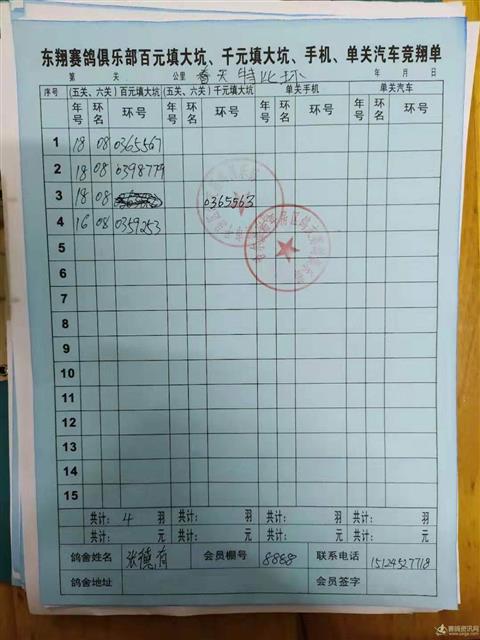 东翔赛鸽俱乐部百元填大坑、千元填大坑、手机、单关汽车竞翔单
第 关 公里 春天特比环 年 月 日
序号 (五关、六关)百元填大坑 (五关、六关)千元填大坑 单关手机 单关汽车
年号 环名 环号 年号 环名 环号 年号 环名 环号 年号 环名 环号
1 18 08 0365567
2 18 08 0398779
3 18 08 0365563
4 16 08 0359253
5
6
7
8
9
10
11
12
13
14
15
共计: 4 羽 共计: 羽 共计: 羽 共计: 羽
共计: 元 共计: 元 共计: 元 共计: 元
鸽舍姓名 张德有 会员棚号 8888 联系电话 15124527718
鸽舍地址 会员签字
赛鸽资讯网